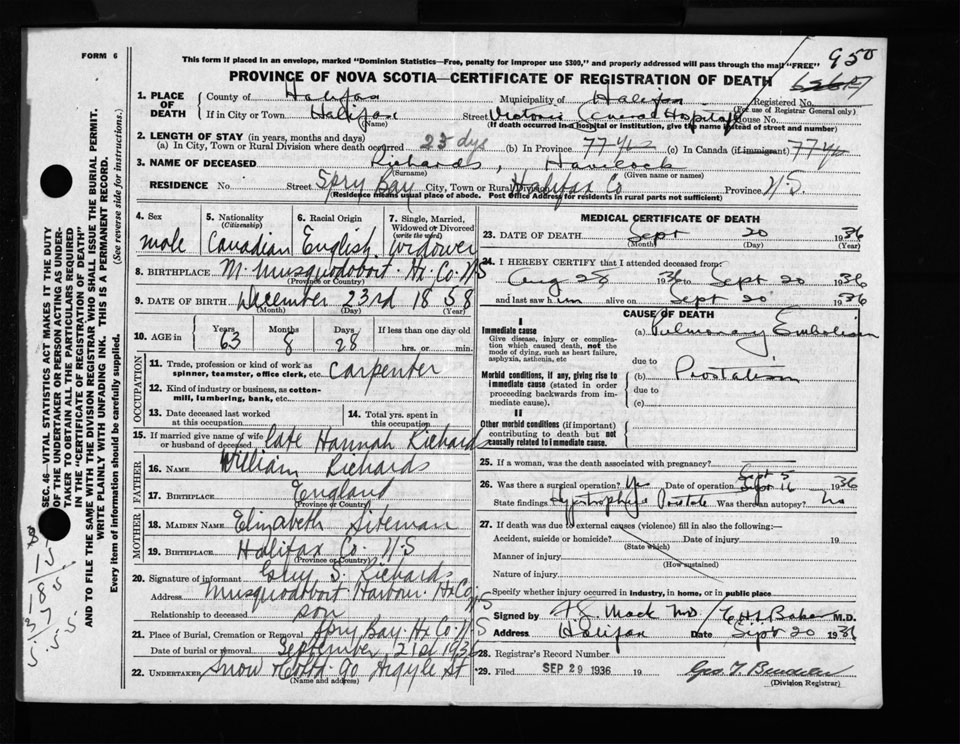 FORM 6
This form if placed in an envelope, marked "Dominion Statistics—Free, penalty for improper use $300," and properly addressed will pass through the mail "FREE"
950
PROVINCE OF NOVA SCOTIA—CERTIFICATE OF REGISTRATION OF DEATH
1. PLACE OF DEATH
County of Halifax Municipality of Halifax Registered No.
(For use of Registrar General only)
If in City or Town Halifax Street Victoria General Hospital House No.
(Name) (If death occurred in a hospital or institution, give the name instead of street and number)
2. LENGTH OF STAY (in years, months and days)
(a) In City, Town or Rural Division where death occurred 23 dys (b) In Province 77 (c) In Canada (if immigrant) 77
3. NAME OF DECEASED Richards, Havelock
(Surname) (Given name or names)
RESIDENCE No. Street Spry Bay City, Town or Rural Division Halifax Co Province N.S.
(Residence means usual place of abode. Post Office Address for residents in rural parts not sufficient)
4. Sex male
5. Nationality (Citizenship) Canadian
6. Racial Origin English
7. Single, Married, Widowed or Divorced (write the word) widower
8. BIRTHPLACE M. Musquodoboit Hx. Co. N.S
(Province or Country)
9. DATE OF BIRTH December 23rd 1858
(Month) (Day) (Year)
10. AGE in
Years 63 Months 8 Days 28 If less than one day old
hrs. or min.
OCCUPATION
11. Trade, profession or kind of work as spinner, teamster, office clerk, etc. Carpenter
12. Kind of industry or business, as cotton-mill, lumbering, bank, etc.
13. Date deceased last worked at this occupation
14. Total yrs. spent in this occupation
15. If married give name of wife or husband of deceased late Hannah Richards
FATHER
16. NAME William Richards
17. BIRTHPLACE England
(Province or Country)
MOTHER
18. MAIDEN NAME Elizabeth Siteman
19. BIRTHPLACE Halifax Co. N.S
(Province or Country)
20. Signature of informant S. Richards
Address Musquodoboit Harbour Hx Co N.S
Relationship to deceased son
21. Place of Burial, Cremation or Removal Spry Bay Hx Co. N.S
Date of burial or removal September 21st 1936
22. UNDERTAKER Snow 90 Argyle St
(Name and address)
MEDICAL CERTIFICATE OF DEATH
23. DATE OF DEATH Sept 20 1936
(Month) (Day) (Year)
24. I HEREBY CERTIFY that I attended deceased from:
Aug 28 1936 to Sept 20 1936
and last saw him alive on Sept 20 1936
CAUSE OF DEATH
I
Immediate cause
Give disease, injury or complication which caused death, not the mode of dying, such as heart failure, asphyxia, asthenia, etc
(a) Pulmonary Embolism
due to
Morbid conditions, if any, giving rise to immediate cause (stated in order proceeding backwards from immediate cause).
(b) Prostatism
due to
(c)
II
Other morbid conditions (if important) contributing to death but not causally related to immediate cause.
25. If a woman, was the death associated with pregnancy?
Sept 5
26. Was there a surgical operation? Yes Date of operation Sept 16 1936
State findings Prostate Was there an autopsy? no
27. If death was due to external causes (violence) fill in also the following:—
Accident, suicide or homicide? Date of injury 19
(State which)
Manner of injury
(How sustained)
Nature of injury
Specify whether injury occurred in industry, in home, or in public place
Signed by Mack MD M.D.
Address Halifax Date Sept 20 1936
28. Registrar's Record Number
29. Filed SEP 29 1936 19
(Division Registrar)
SEC. 46—VITAL STATISTICS ACT MAKES IT THE DUTY OF THE UNDERTAKER OR PERSON ACTING AS UNDERTAKER TO OBTAIN ALL THE PARTICULARS REQUIRED IN THE "CERTIFICATE OF REGISTRATION OF DEATH"
AND TO FILE THE SAME WITH THE DIVISION REGISTRAR WHO SHALL ISSUE THE BURIAL PERMIT.
(See reverse side for instructions.)
WRITE PLAINLY WITH UNFADING INK. THIS IS A PERMANENT RECORD.
Every item of information should be carefully supplied.